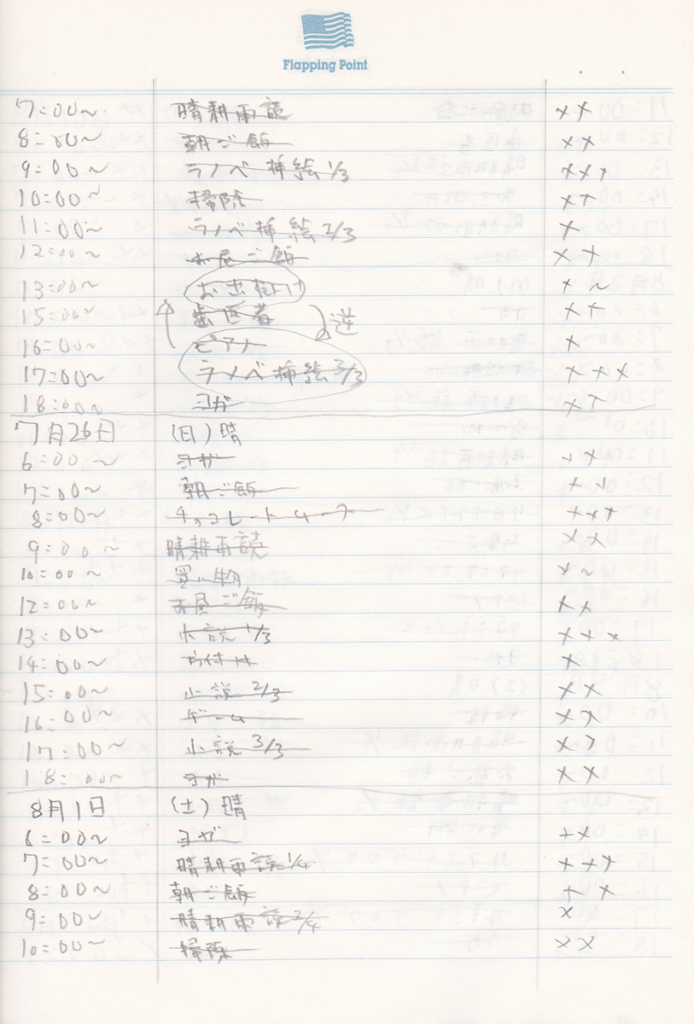 Flapping Point
7:00〜 晴耕雨読 ××
8:00〜 朝ご飯 ××
9:00〜 ラノベ挿絵1/3 ×××
10:00〜 掃除 ××
11:00〜 ラノベ挿絵2/3 ×
12:00〜 お昼ご飯 ××
13:00〜 お出掛け × ~
15:00〜 歯医者 逆 ××
16:00〜 ピアノ ×
17:00〜 ラノベ挿絵3/3 ×××
18:00〜 ヨガ ××
7月26日 (日)晴
6:00〜 ヨガ ××
7:00〜 朝ご飯 ××
8:00〜 チョコレートムース ×××
9:00〜 晴耕雨読 ××
10:00〜 買い物 × ~
12:00〜 お昼ご飯 ××
13:00〜 小説1/3 ×××
14:00〜 片付け ×
15:00〜 小説2/3 ××
16:00〜 ゲーム ××
17:00〜 小説3/3 ××
18:00〜 ヨガ ××
8月1日 (土)晴
6:00〜 ヨガ ××
7:00〜 晴耕雨読1/4 ×××
8:00〜 朝ご飯 ××
9:00〜 晴耕雨読2/4 ×
10:00〜 掃除 ××